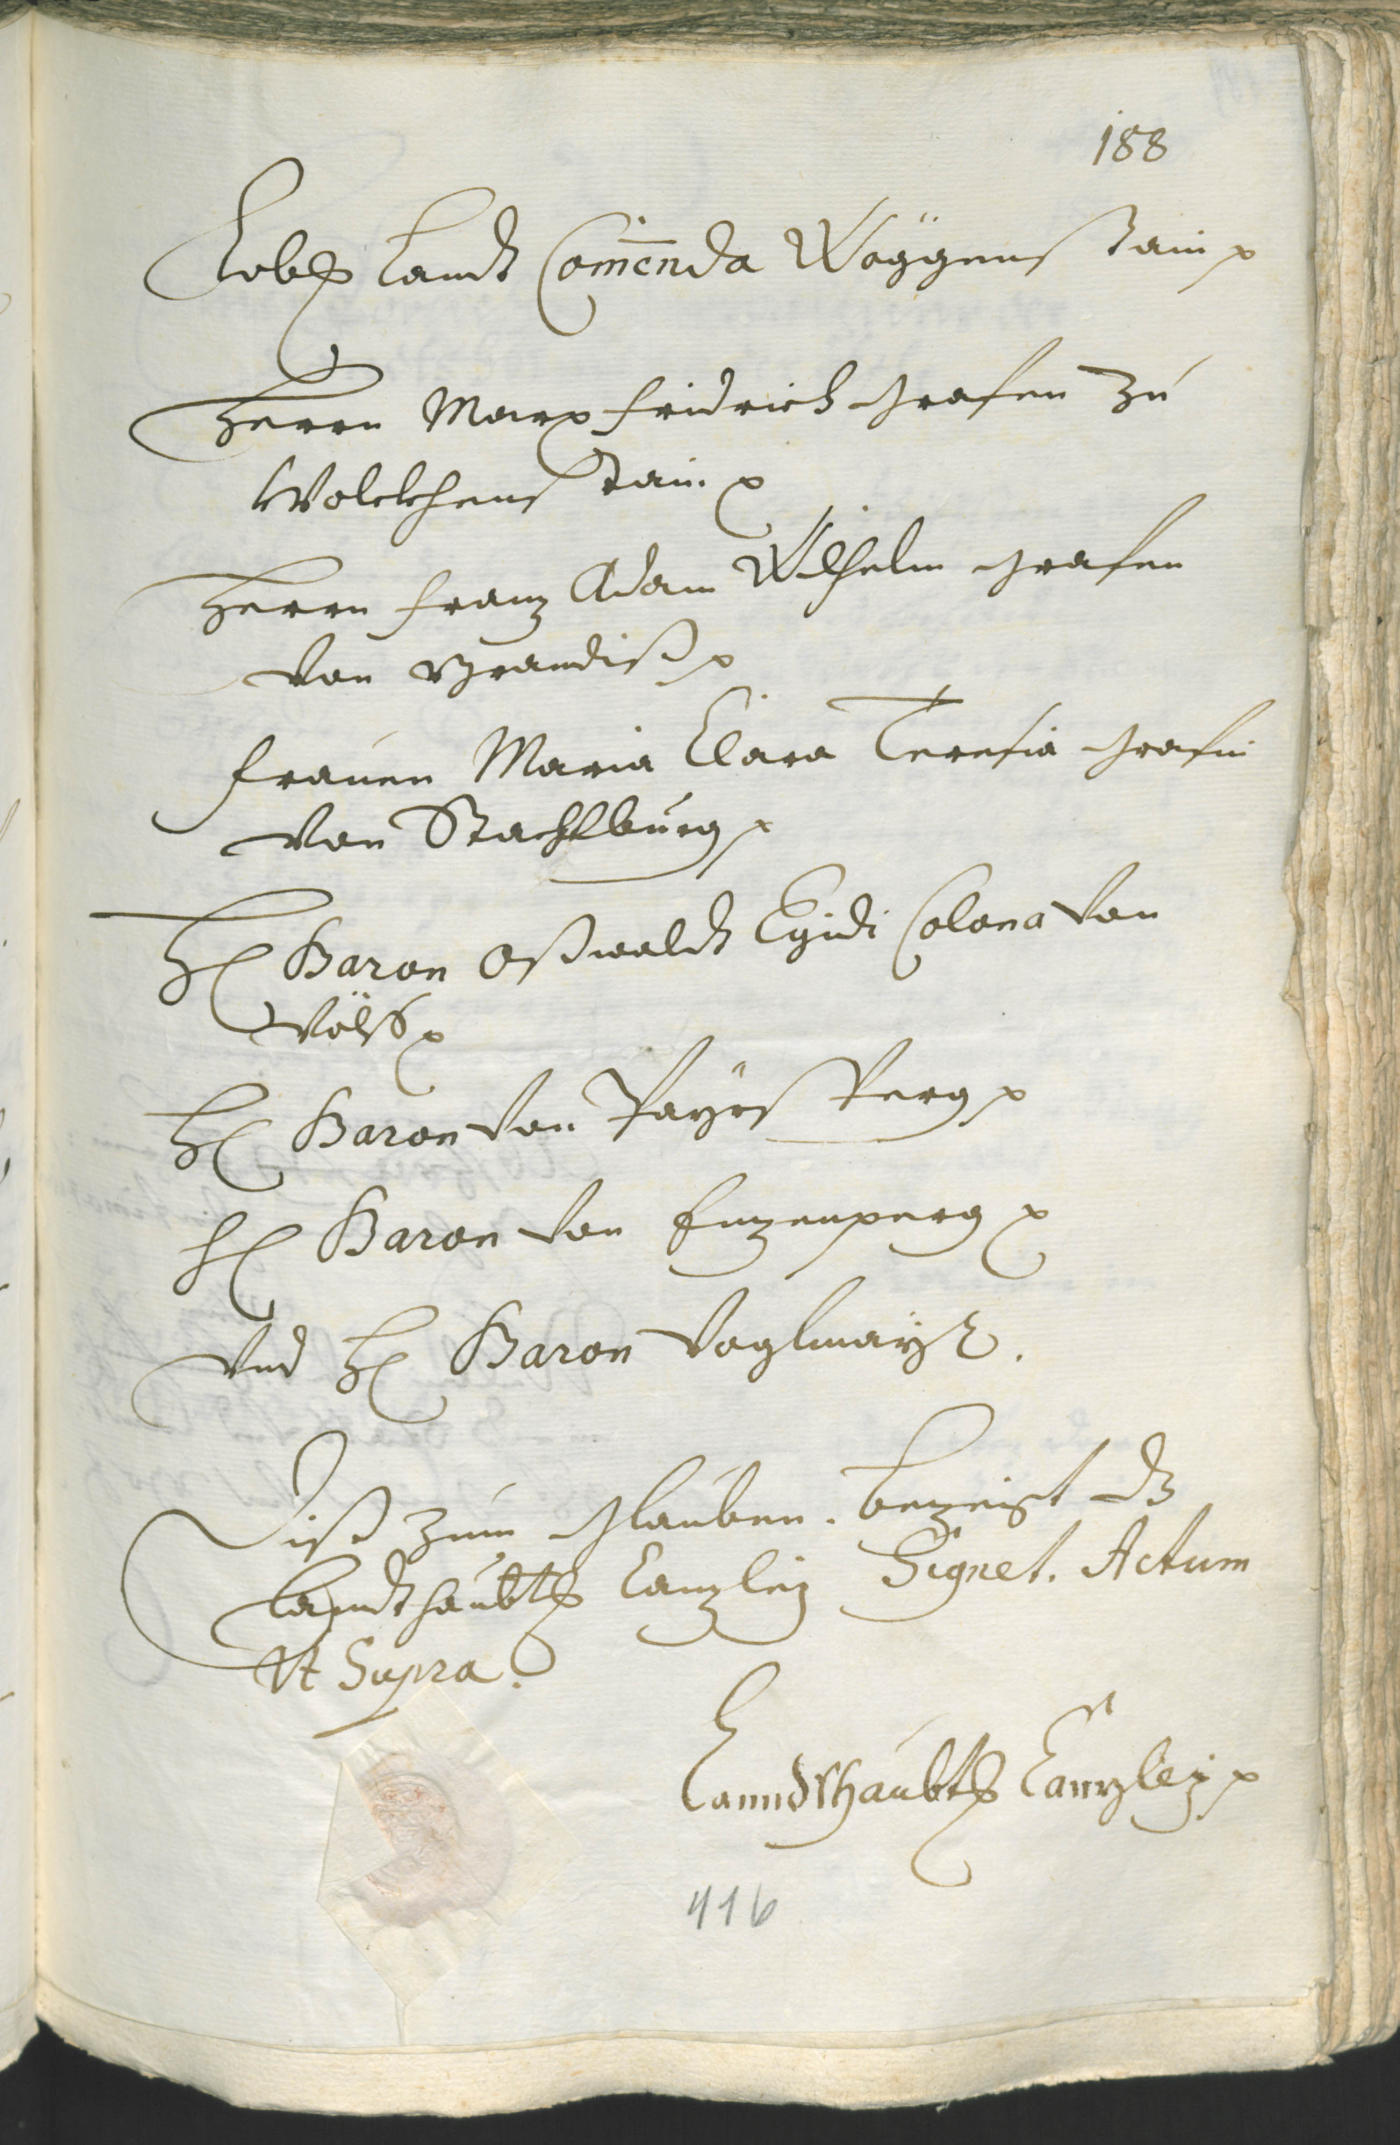 188
Lobl: Landt Com̄enda Wöggenstain
Herrn Marx Fridrich Grafen zu
Wolckhenstain
Herrn Franz Adam Wilhelm Grafen
von Brandiß
Frauen Maria Clara Teresia Grafin
von Stachlburg
H: Baron Oßwaldt Egidi Colona von
Völß
H: Baron von Payrsperg
H: Baron von Enzenperg
Und H: Baron Voglmayr.
Diß zum Glauben bezeigt dz
Landthaubt: Canzley Signet. Actum
Ut Supra.
Lanndtshaubt: Canzley
416